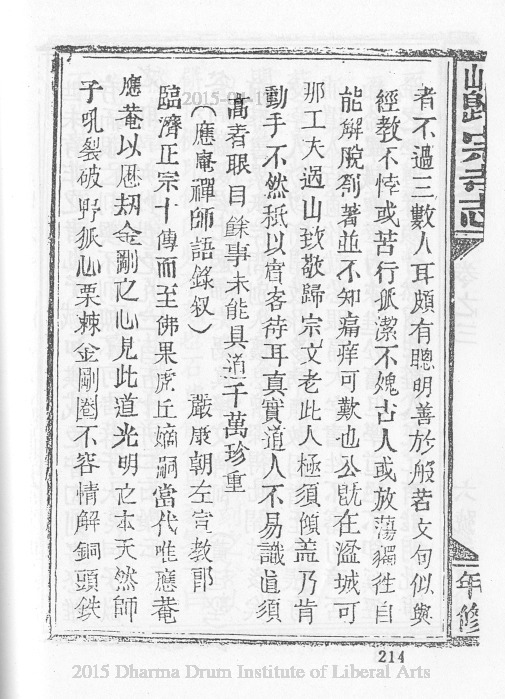 者不過三數人耳頗有聰明善於般若文句似與
經教不悖或苦行孤潔不媿古人或放蕩獨往自
能解脫劄著並不知痛痒可歎也公既在溢城可
那工夫過山致敬歸宗文老此人極須傾盖乃肯
動手不然秖以賔客待耳真實道人不易識直須
高者眼目餘事未能具道千萬珍重
（應庵禪師語錄叙）　嚴康朝左宣教郎
臨濟正宗十傳而至佛果虎丘嫡嗣當代唯應菴
應菴以歷劫金剛之心見此道光明之本天然師
子吼裂破野狐心栗棘金剛圈不容情解銅頭鉄
山歸宗寺志
年修
214
2015 Dharma Drum Institute of Liberal Arts